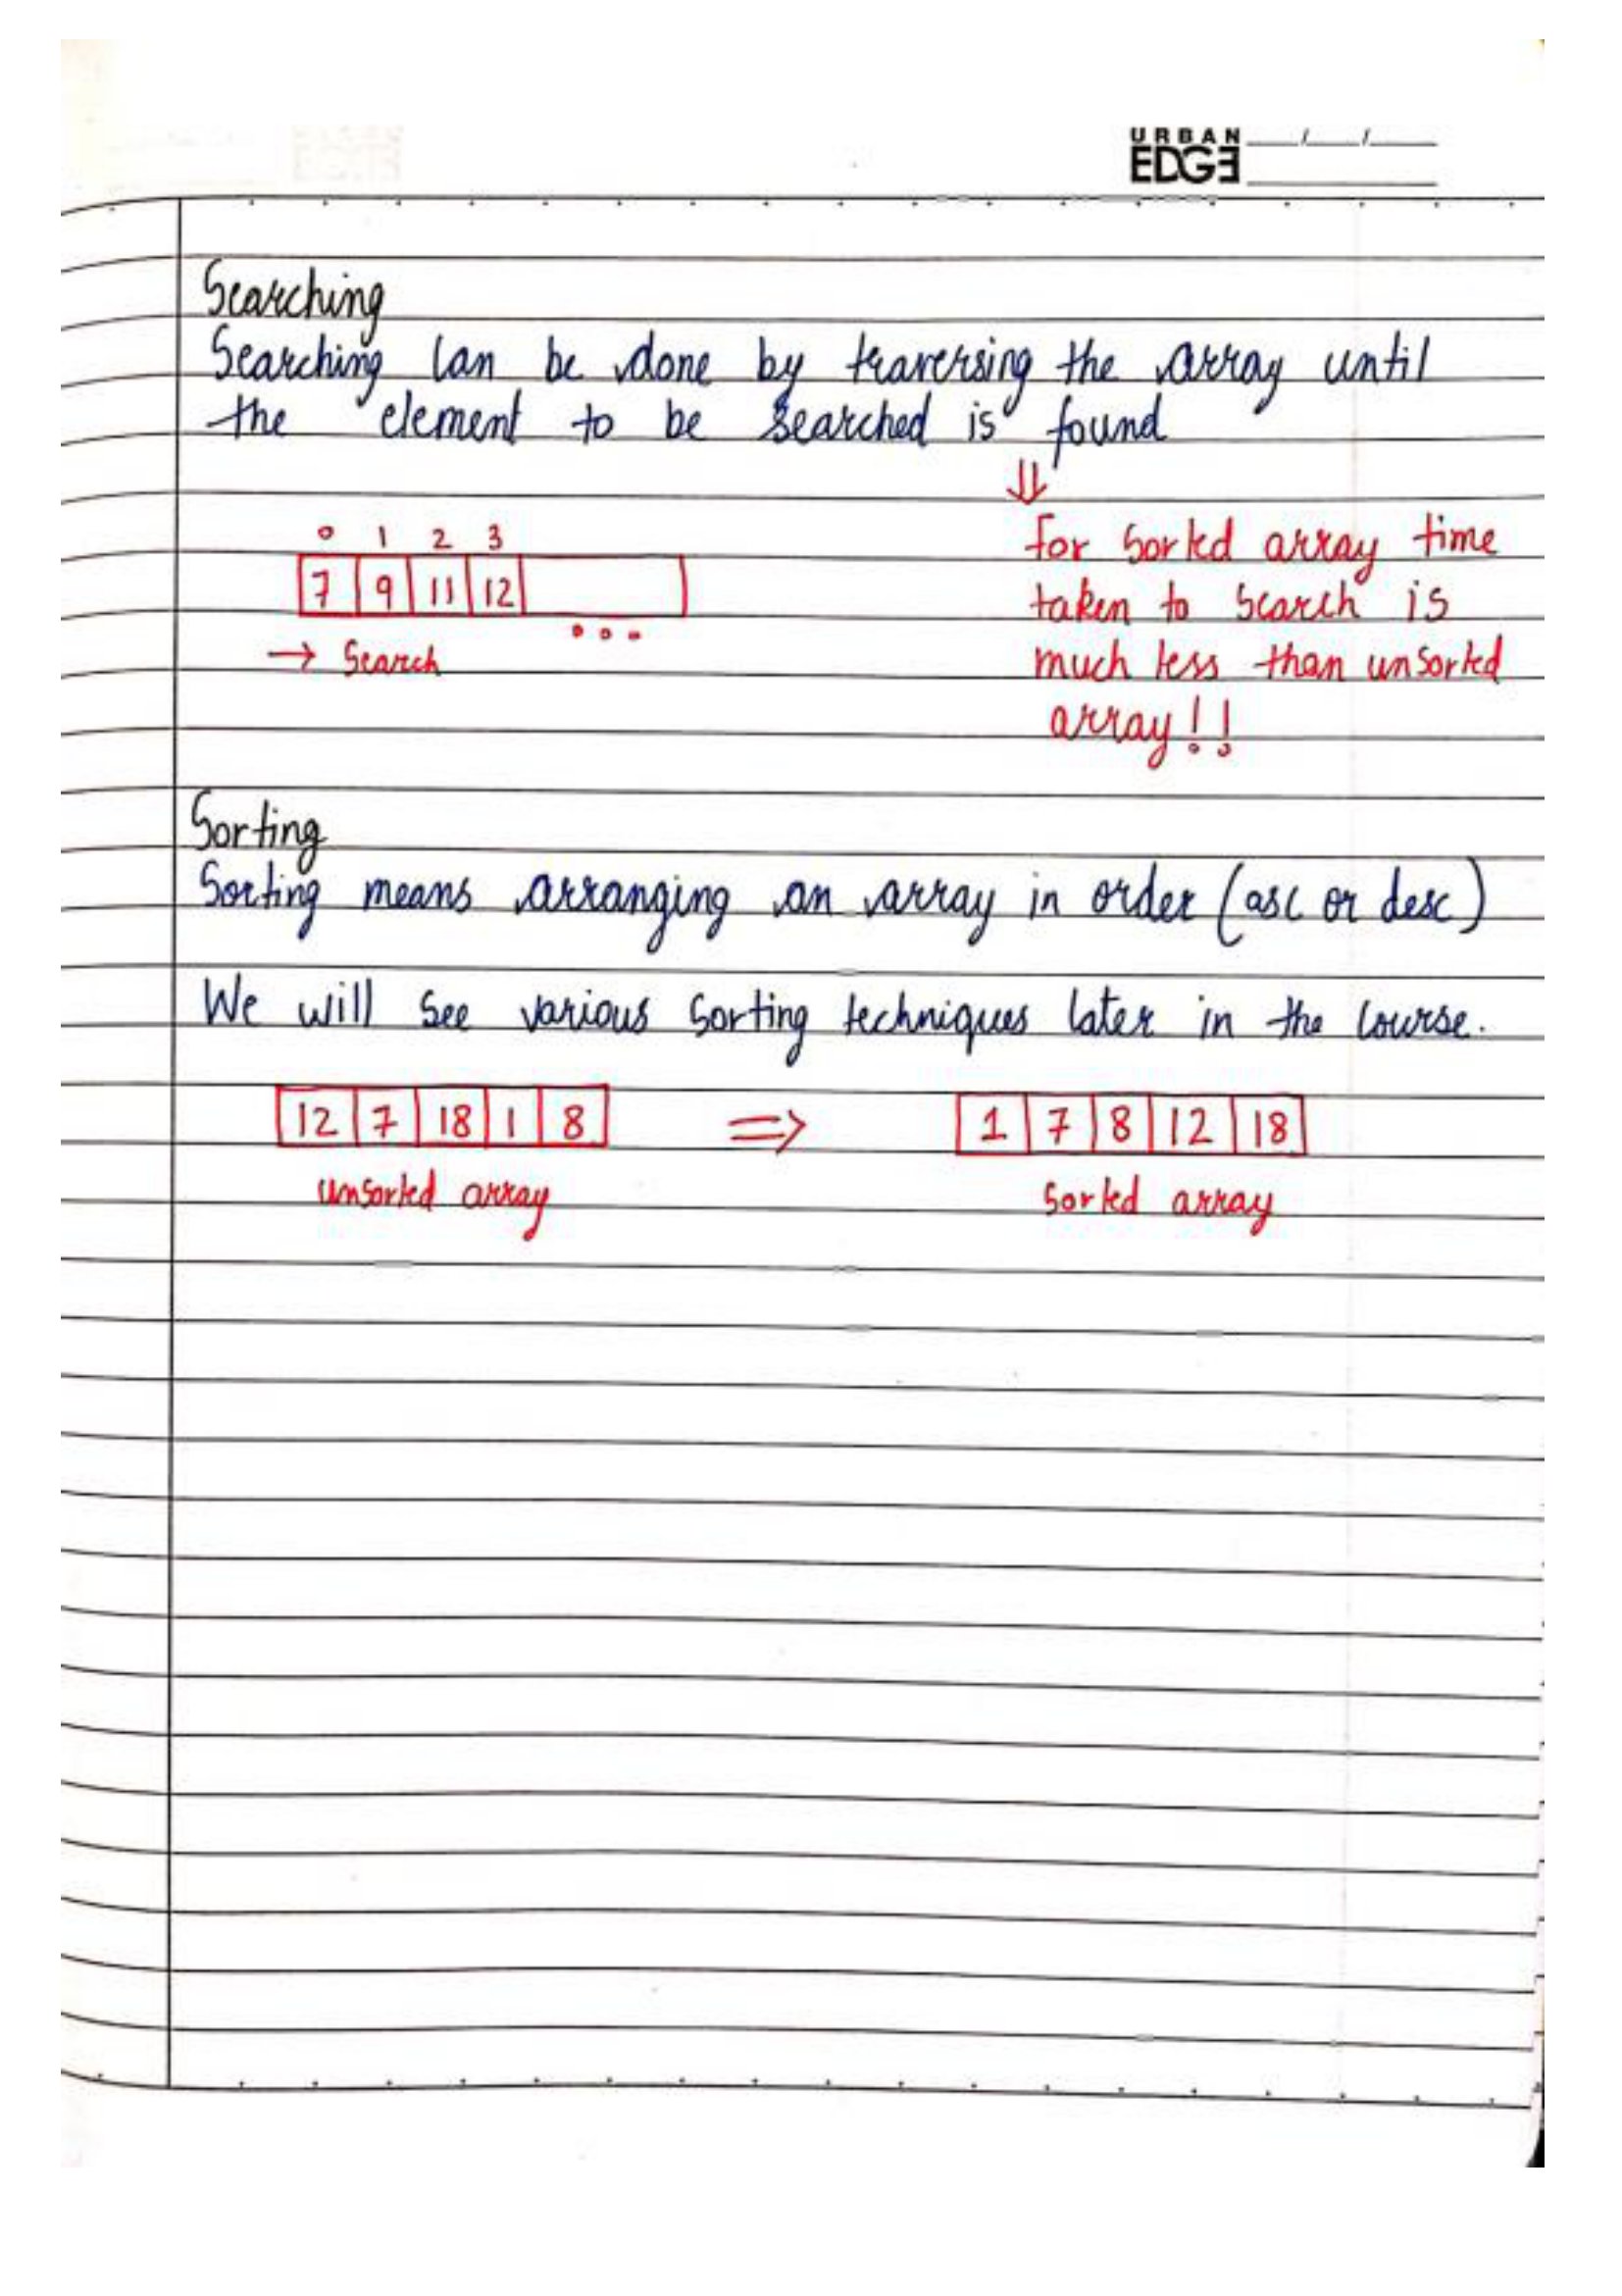 URBAN
EDGE
Searching
Searching can be done by traversing the array until
the element to be searched is found
⇓
for sorted array time
taken to search is
much less than unsorted
array!!
0 1 2 3
7 9 11 12
...
→ Search
Sorting
Sorting means arranging an array in order (asc or desc)
We will see various sorting techniques later in the course.
12 7 18 1 8 ⇒ 1 7 8 12 18
unsorted array sorted array